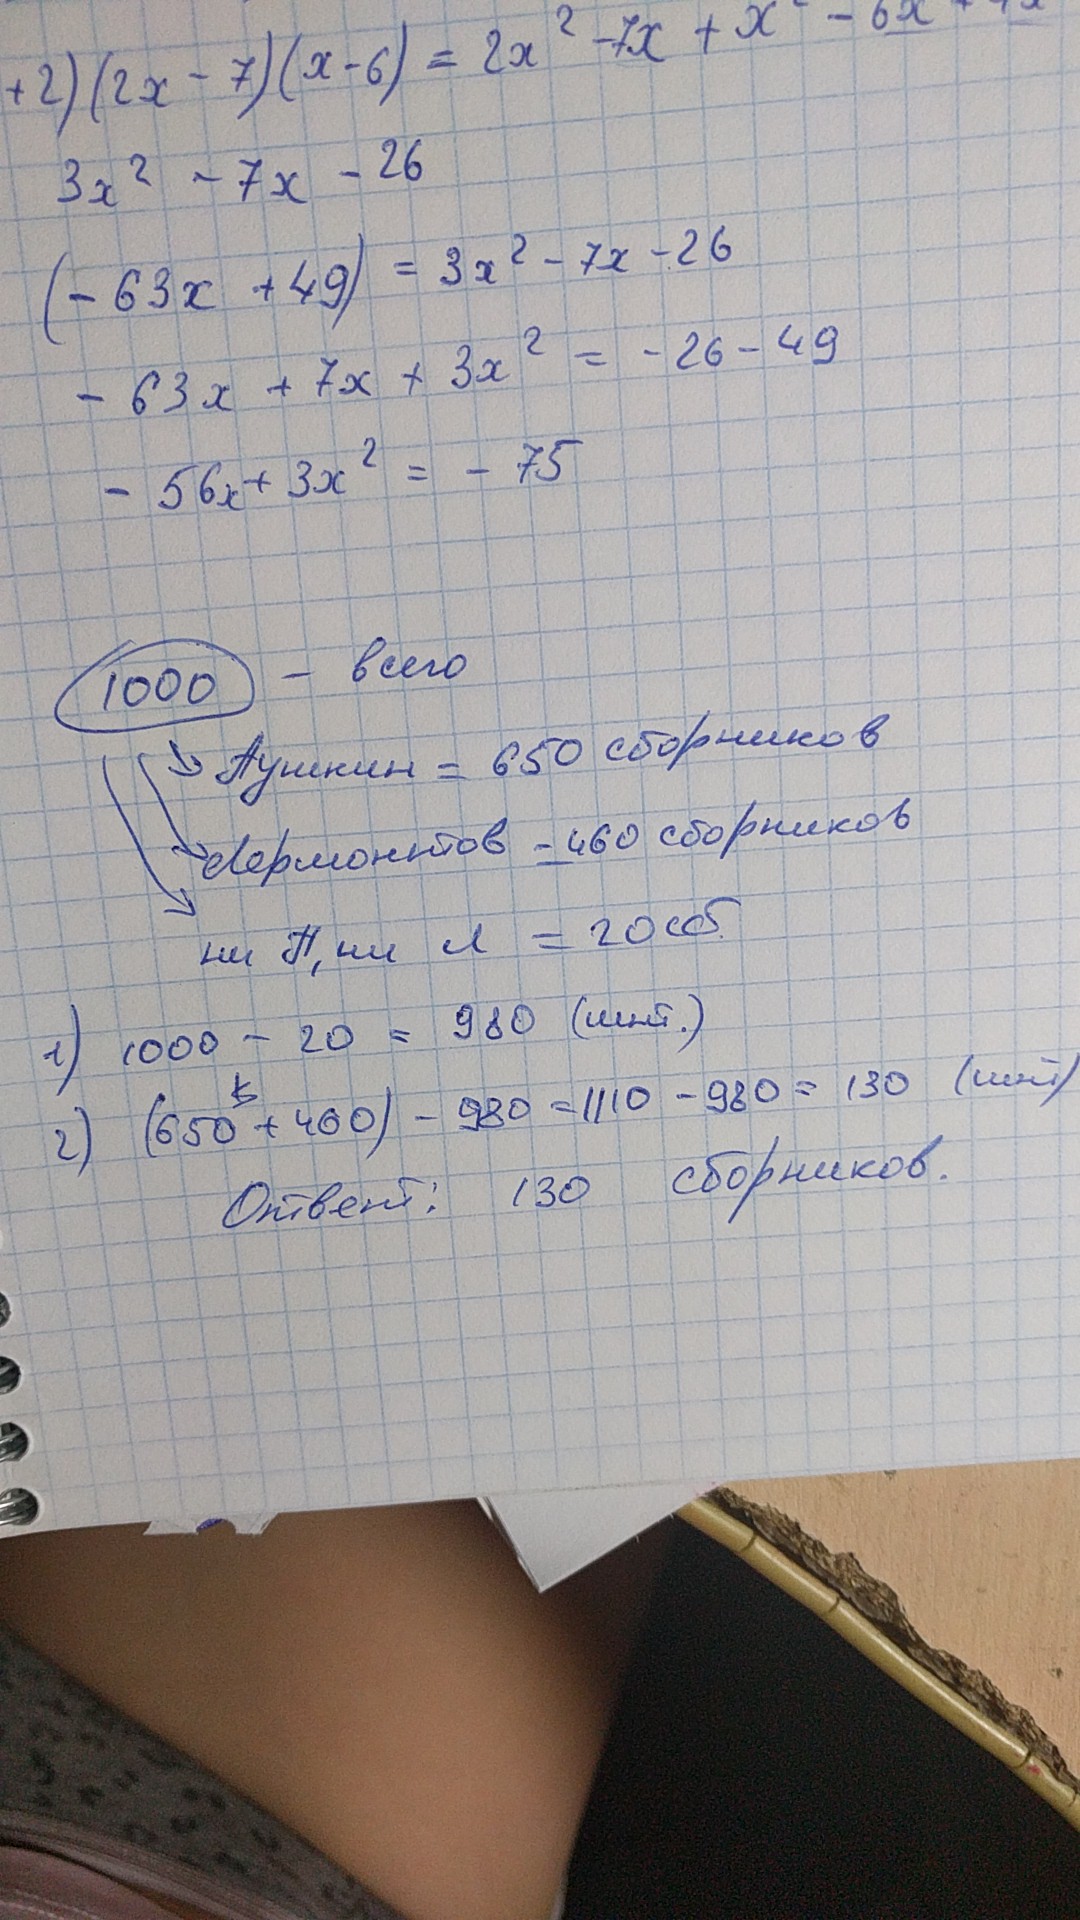 +2)(2x - 7)(x-6) = 2x² -7x + x² - 6x + 4x
3x² - 7x - 26
(- 63x + 49) = 3x² - 7x - 26
- 63x + 7x + 3x² = - 26 - 49
- 56x + 3x² = - 75
1000 - всего
Пушкин = 650 сборников
Лермонтов - 460 сборников
ни П, ни Л = 20 сб.
1) 1000 - 20 = 980 (шт.)
2) (650 + 460) - 980 = 1110 - 980 = 130 (шт)
Ответ: 130 сборников.